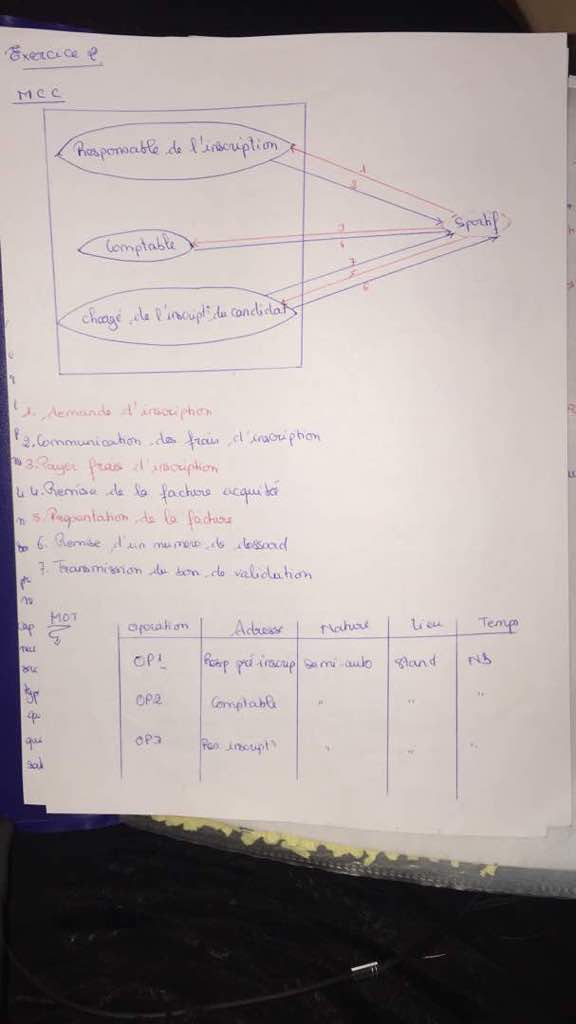 Exercice 2
MCC
Responsable de l'inscription
1
2
Sportif
Comptable
3
4
7
5
6
chargé de l'inscript° du candidat
1. Demande d'inscription
2. Communication des frais d'inscription
3. Payer frais d'inscription
4. Remise de la facture acquité
5. Présentation de la facture
6. Remise d'un numero de dossard
7. Transmission du bon de validation
MOT
Operation Adresse Nature Lieu Temps
OP1 Resp pré-inscrip semi-auto stand
OP2 Comptable " " "
OP3 inscript° " " "